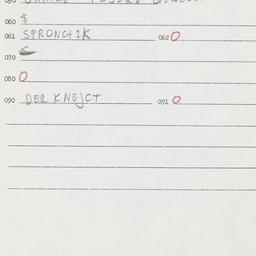 060 $
061 SPRONCHIK 062 O
070
080 O
090 DER KNEJCT 091 O